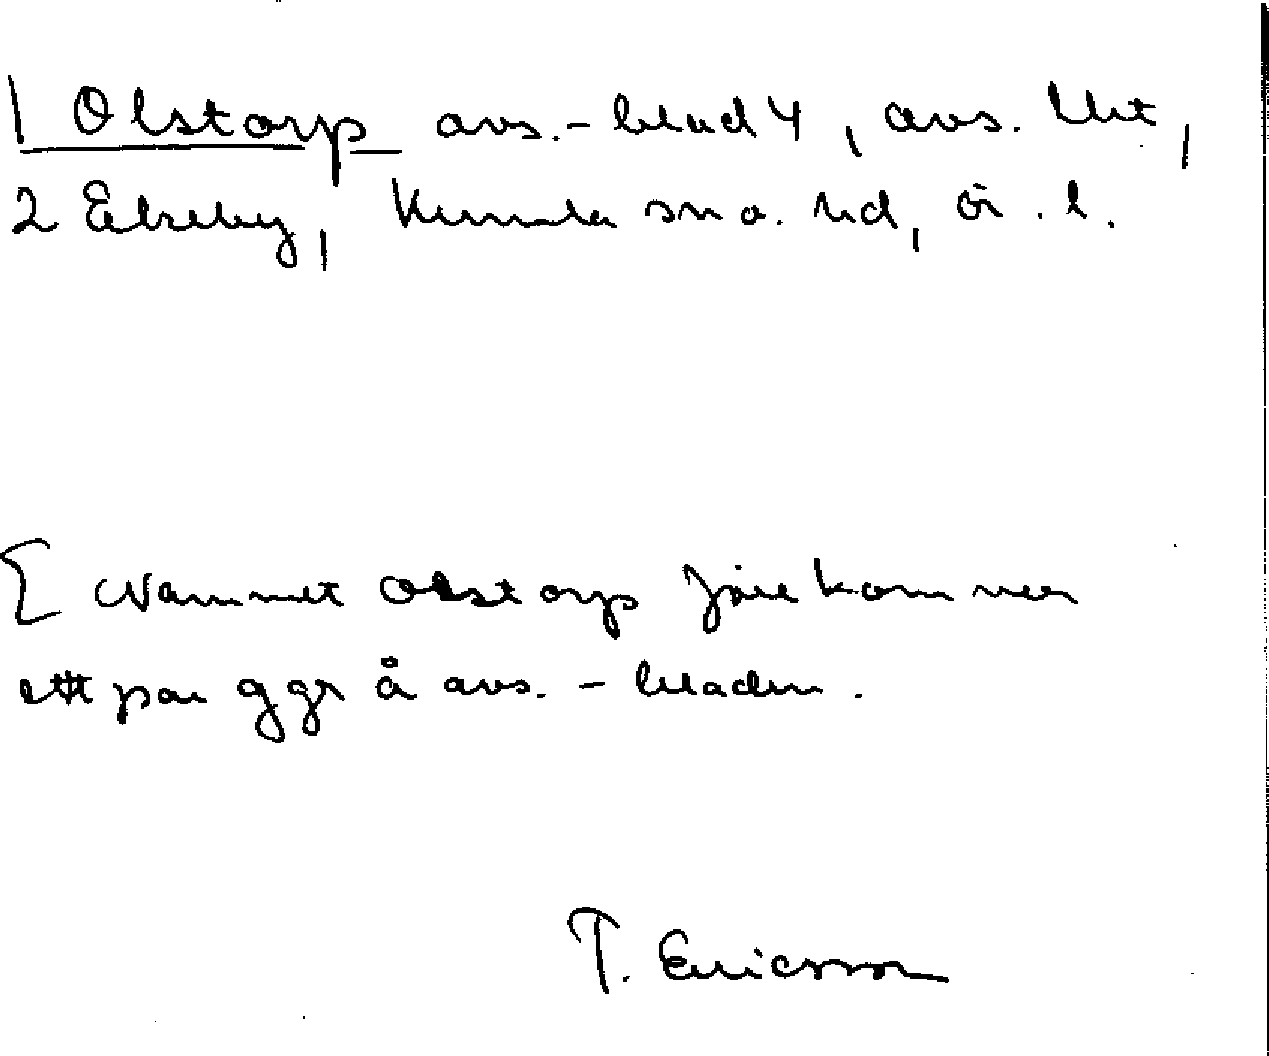 1 Olstorp avs.-blad 4, avs. Utt,
2 Elreby, Kumla sn o. hd, ö. l.
[ Namnet Olstorp förekommer
ett par ggr å avs.-bladen.
T. Ericsson